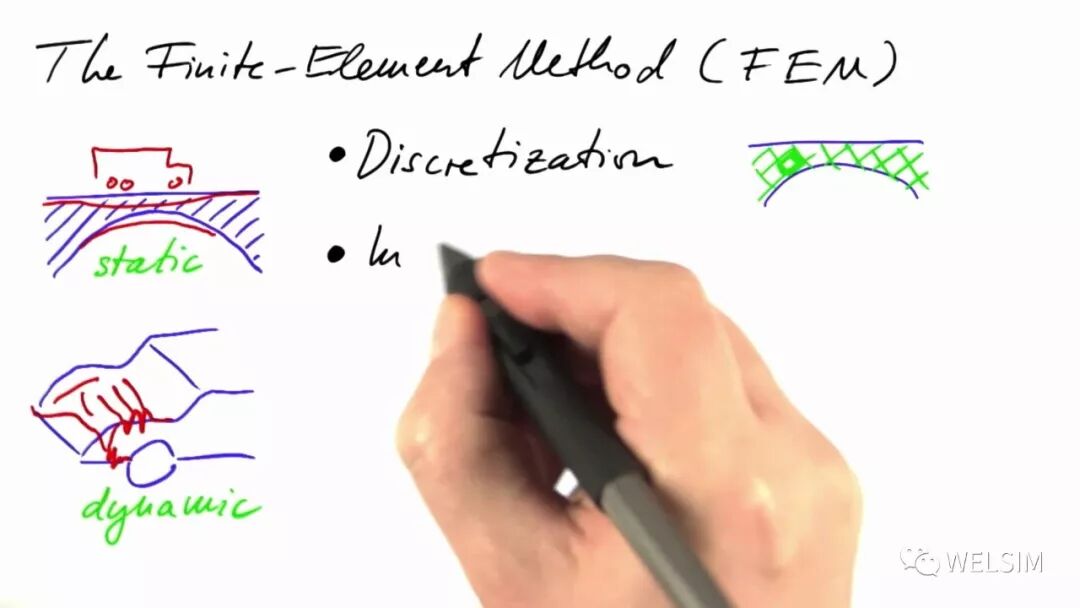 The Finite-Element Method (FEM)
• Discretization
• In
static
dynamic
WELSIM